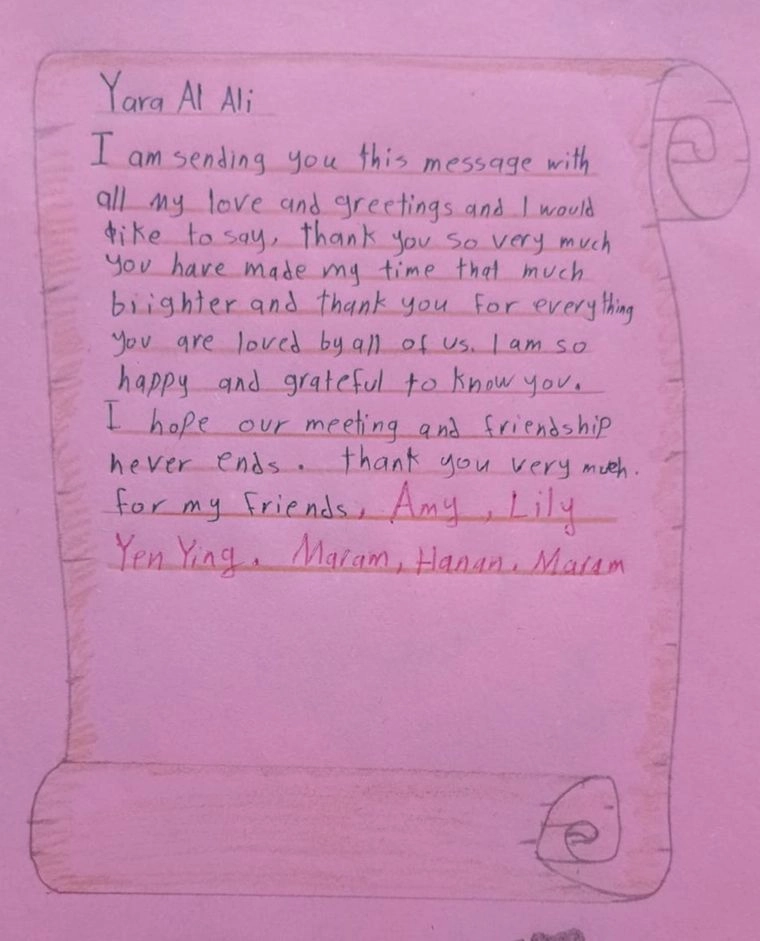 Yara Al Ali
I am sending you this message with
all my love and greetings and I would
like to say, thank you so very much
you have made my time that much
brighter and thank you for everything
you are loved by all of us. I am so
happy and grateful to know you.
I hope our meeting and friendship
never ends. thank you very much.
for my friends, Amy, Lily
Yen Ying. Maram, Hanan. Maram